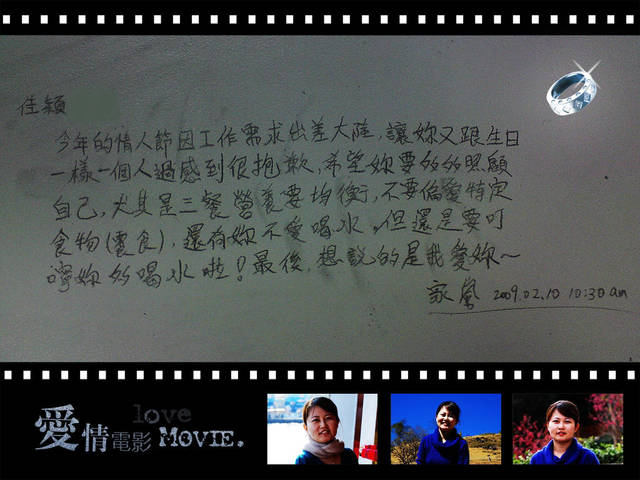 佳穎
今年的情人節因工作需求出差大陸，讓妳又跟生日
一樣一個人過感到很抱歉，希望妳要多多照顧
自己，尤其是三餐營養要均衡，不要偏愛特定
食物(零食)，還有妳不愛喝水，但還是要叮
嚀妳多喝水啦！最後，想說的是我愛妳～
家 2009.02.10 10:30 am
love
愛情電影 MOVIE.